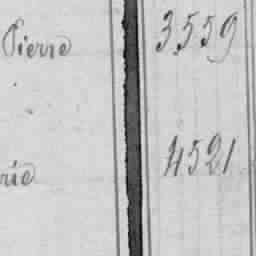 Pierre 3,559
rie 4521